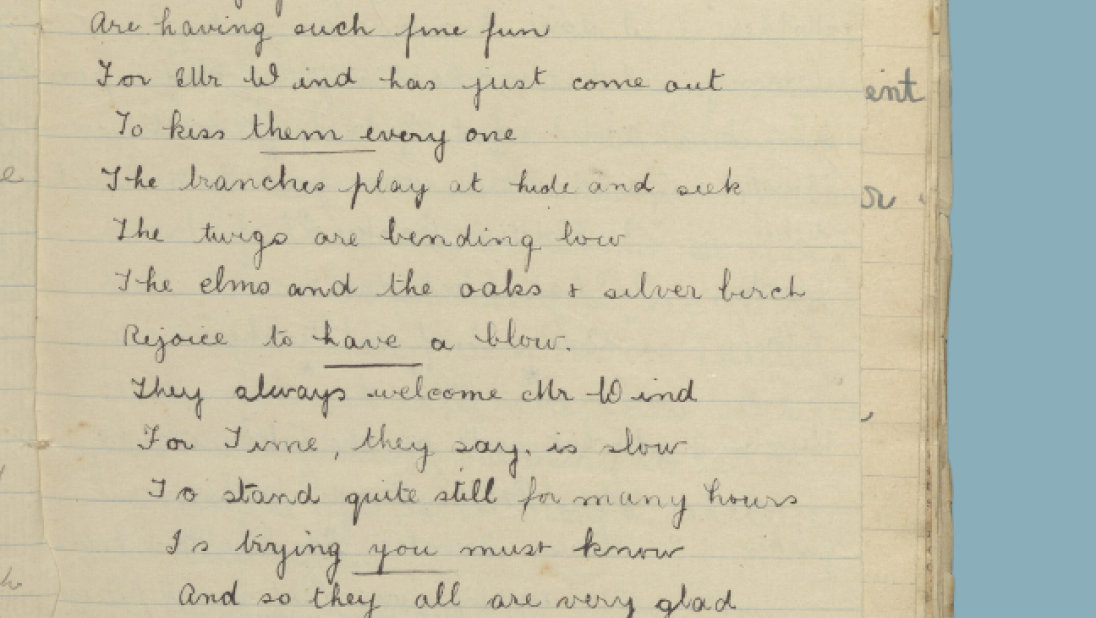 Are having such fine fun
For Mr Wind has just come out
To kiss them every one
The branches play at hide and seek
The twigs are bending low
The elms and the oaks & silver birch
Rejoice to have a blow.
They always welcome Mr Wind
For Time, they say, is slow
To stand quite still for many hours
Is trying you must know
And so they all are very glad
ent